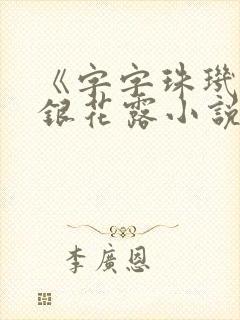 《字字珠璣
銀花露小說
李廣恩